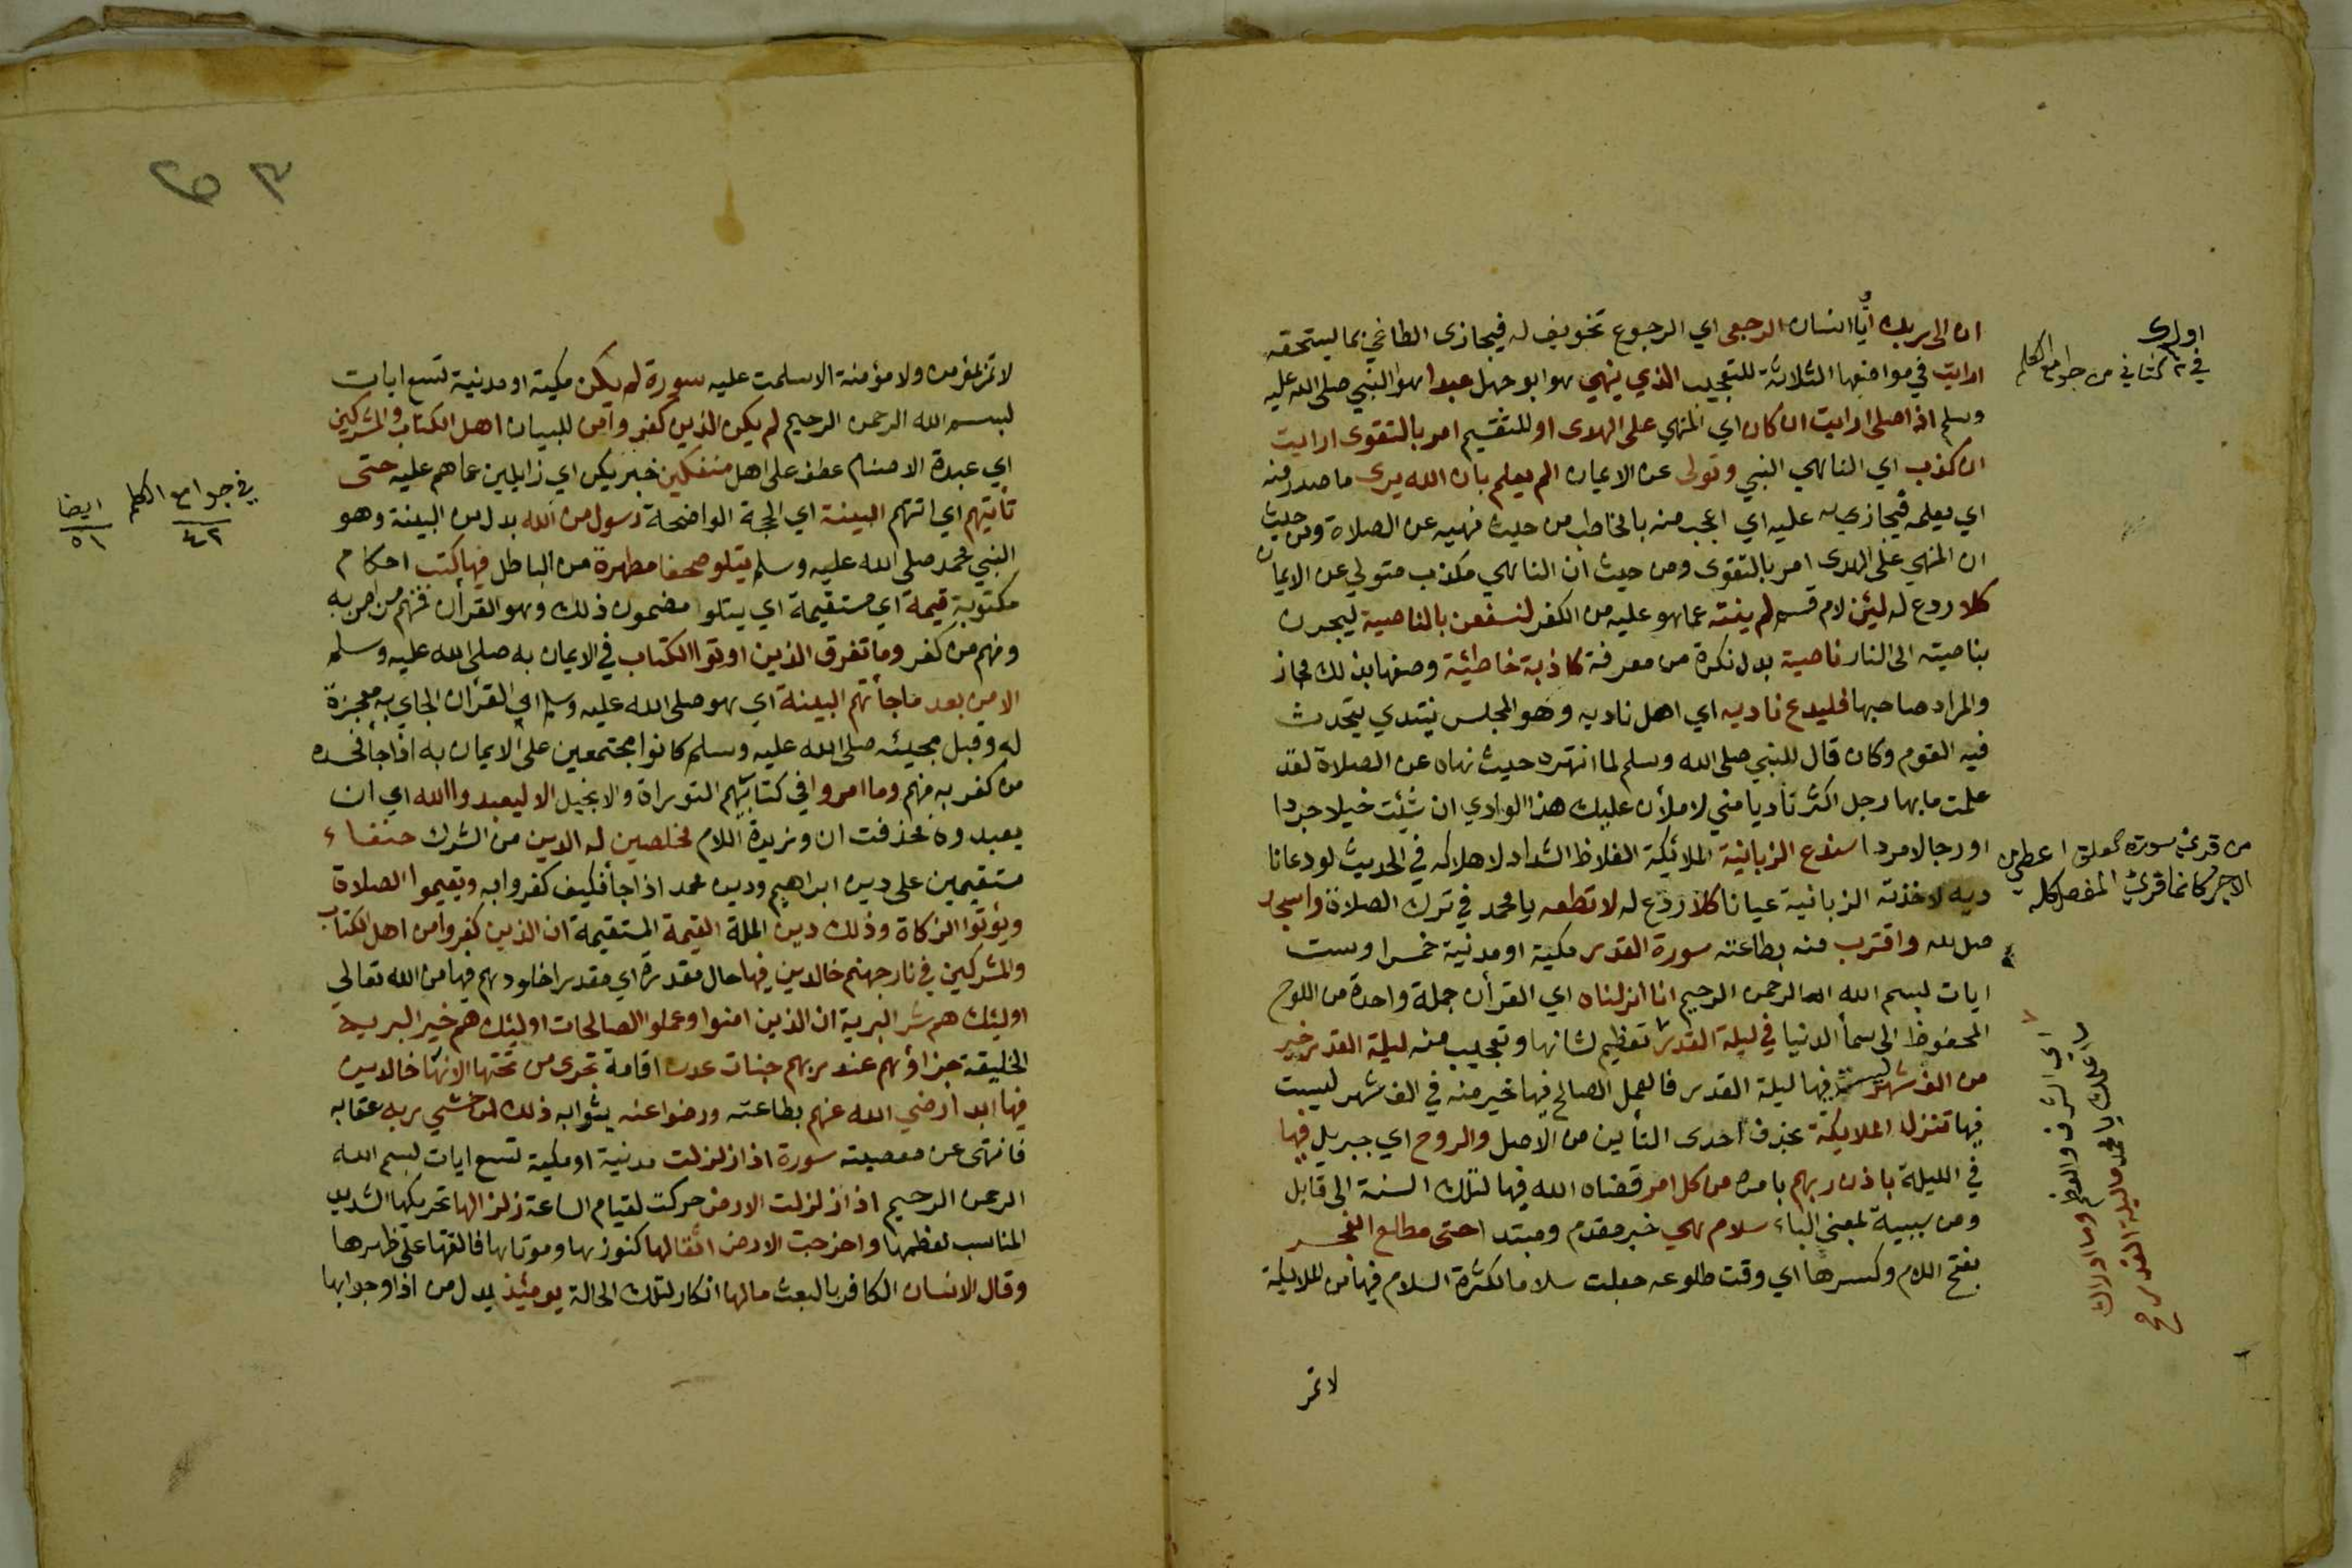 ان الى ربك ايا انسان الرجعى اي الرجوع تخويف له فيجازى الطاغي بما يستحقه
ارايت في مواضعها الثلاثة للتعجيب الذي ينهي هو ابو جهل عبدا هو النبي صلى الله عليه
وسلم اذا صلى ارايت ان كان اي المنهي على الهدى او للتقسيم امر بالتقوى ارايت
ان كذب اي الناهي النبي وتولى عن الايمان الم يعلم بان الله يرى ما صدر منه
اي يعلمه فيجازيه عليه اي اعجب منه يا مخاطب من حيث نهيه عن الصلاة ومن حيث
ان المنهي على الهدى امر بالتقوى ومن حيث ان الناهي مكذب متولي عن الايمان
كلا ردع له لئن لام قسم لم ينته عما هو عليه من الكفر لنسفعن بالناصية ليجرن
بناصيته الى النار ناصية بدل نكرة من معرفة كاذبة خاطئة وصفها بذلك مجاز
والمراد صاحبها فليدع ناديه اي اهل ناديه وهو المجلس ينتدي يتحدث
فيه القوم وكان قال للنبي صلى الله وسلم لما انتهره حيث نهاه عن الصلاة لقد
علمت ما بها رجل اكثر ناديا مني لاملأن عليك هذا الوادي ان شئت خيلا جردا
او رجالا مردا سندع الزبانية الملائكة الغلاظ الشداد لاهلاكه في الحديث لو دعا نا
ديه لاخذته الزبانية عيانا كلا ردع له لا تطعه يا محمد في ترك الصلاة واسجد
صل لله واقترب منه بطاعته سورة القدر مكية او مدنية خمس او ست
ايات بسم الله الرحمن الرحيم انا انزلناه اي القرأن جملة واحدة من اللوح
المحفوظ الى سمأ الدنيا في ليلة القدر تعظيم لشانها وتعجيب منه ليلة القدر خير
من الف شهر ليست فيها ليلة القدر فالعمل الصالح فيها خير منه في الف شهر ليست
فيها تنزل الملايكة بحذف احدى التأين من الاصل والروح اي جبريل فيها
في الليلة باذن ربهم بامره من كل امر قضاه الله فيها لتلك السنة الى قابل
ومن سببية بمعنى الباء سلام هي خبر مقدم ومبتدا حتى مطلع الفجر
بفتح اللام وكسرها اي وقت طلوعه جعلت سلاما لكثرة السلام فيها من الملايكة
لا تمر
في كتاني من جوامع الكلم
من قرئ سورة العلق اعطي من
الاجر كانما قرئ المفصل كله
اي الشرف والعظم وما ادراك
اعلمك يا محمد ما ليلة القدر
لا تمر بمؤمن ولا مؤمنة الا سلمت عليه سورة لم يكن مكية او مدنية تسع ايات
بسم الله الرحمن الرحيم لم يكن الذين كفروا من للبيان اهل الكتاب والمشركين
اي عبدة الاصنام عطف على اهل منفكين خبر يكن اي زايلين عما هم عليه حتى
تأتيهم اي اتتهم البينة اي الحجة الواضحة رسول من الله بدل من البينة وهو
النبي محمد صلى الله عليه وسلم يتلو صحفا مطهرة من الباطل فيها كتب احكام
مكتوبة قيمة اي مستقيمة اي يتلوا مضمون ذلك وهو القرأن فمنهم من امن به
ومنهم من كفر وما تفرق الذين اوتوا الكتاب في الايمان به صلى الله عليه وسلم
الا من بعد ما جأتهم البينة اي هو صلى الله عليه وسلم اي القرأن الجاي به معجزة
له وقبل مجيئه صلى الله عليه وسلم كانوا مجتمعين على الايمان به اذا جأ فحسده
من كفر به منهم وما امروا في كتابيهم التوراة والانجيل الا ليعبدوا الله اي ان
يعبدوه فحذفت ان وزيدة اللام مخلصين له الدين من الشرك حنفاء
مستقيمين على دين ابراهيم ودين محمد اذا جأ فكيف كفروا به ويقيموا الصلاة
ويؤتوا الزكاة وذلك دين الملة القيمة المستقيمة ان الذين كفروا من اهل الكتاب
والمشركين في نار جهنم خالدين فيها حال مقدرة اي مقدرا خلودهم فيها من الله تعالى
اوليئك هم شر البرية ان الذين امنوا وعملوا الصالحات اوليئك هم خير البرية
الخليقة جزاؤهم عند ربهم جنات عدن اقامة تجرى من تحتها الانهار خالدين
فيها ابدا رضي الله عنهم بطاعته ورضوا عنه بثوابه ذلك لمن خشي ربه عقابه
فانتهى عن معصيته سورة اذا زلزلت مدنية او مكية تسع ايات بسم الله
الرحمن الرحيم اذا زلزلت الارض حركت لقيام الساعة زلزالها تحريكها الشديد
المناسب لعظمها واخرجت الارض اثقالها كنوزها وموتاها فالقتها على ظهرها
وقال الانسان الكافر بالبعث مالها انكار لتلك الحالة يومئذ بدل من اذا وجوابها
في جوامع الكلم
٤٢
ايضا
٥١